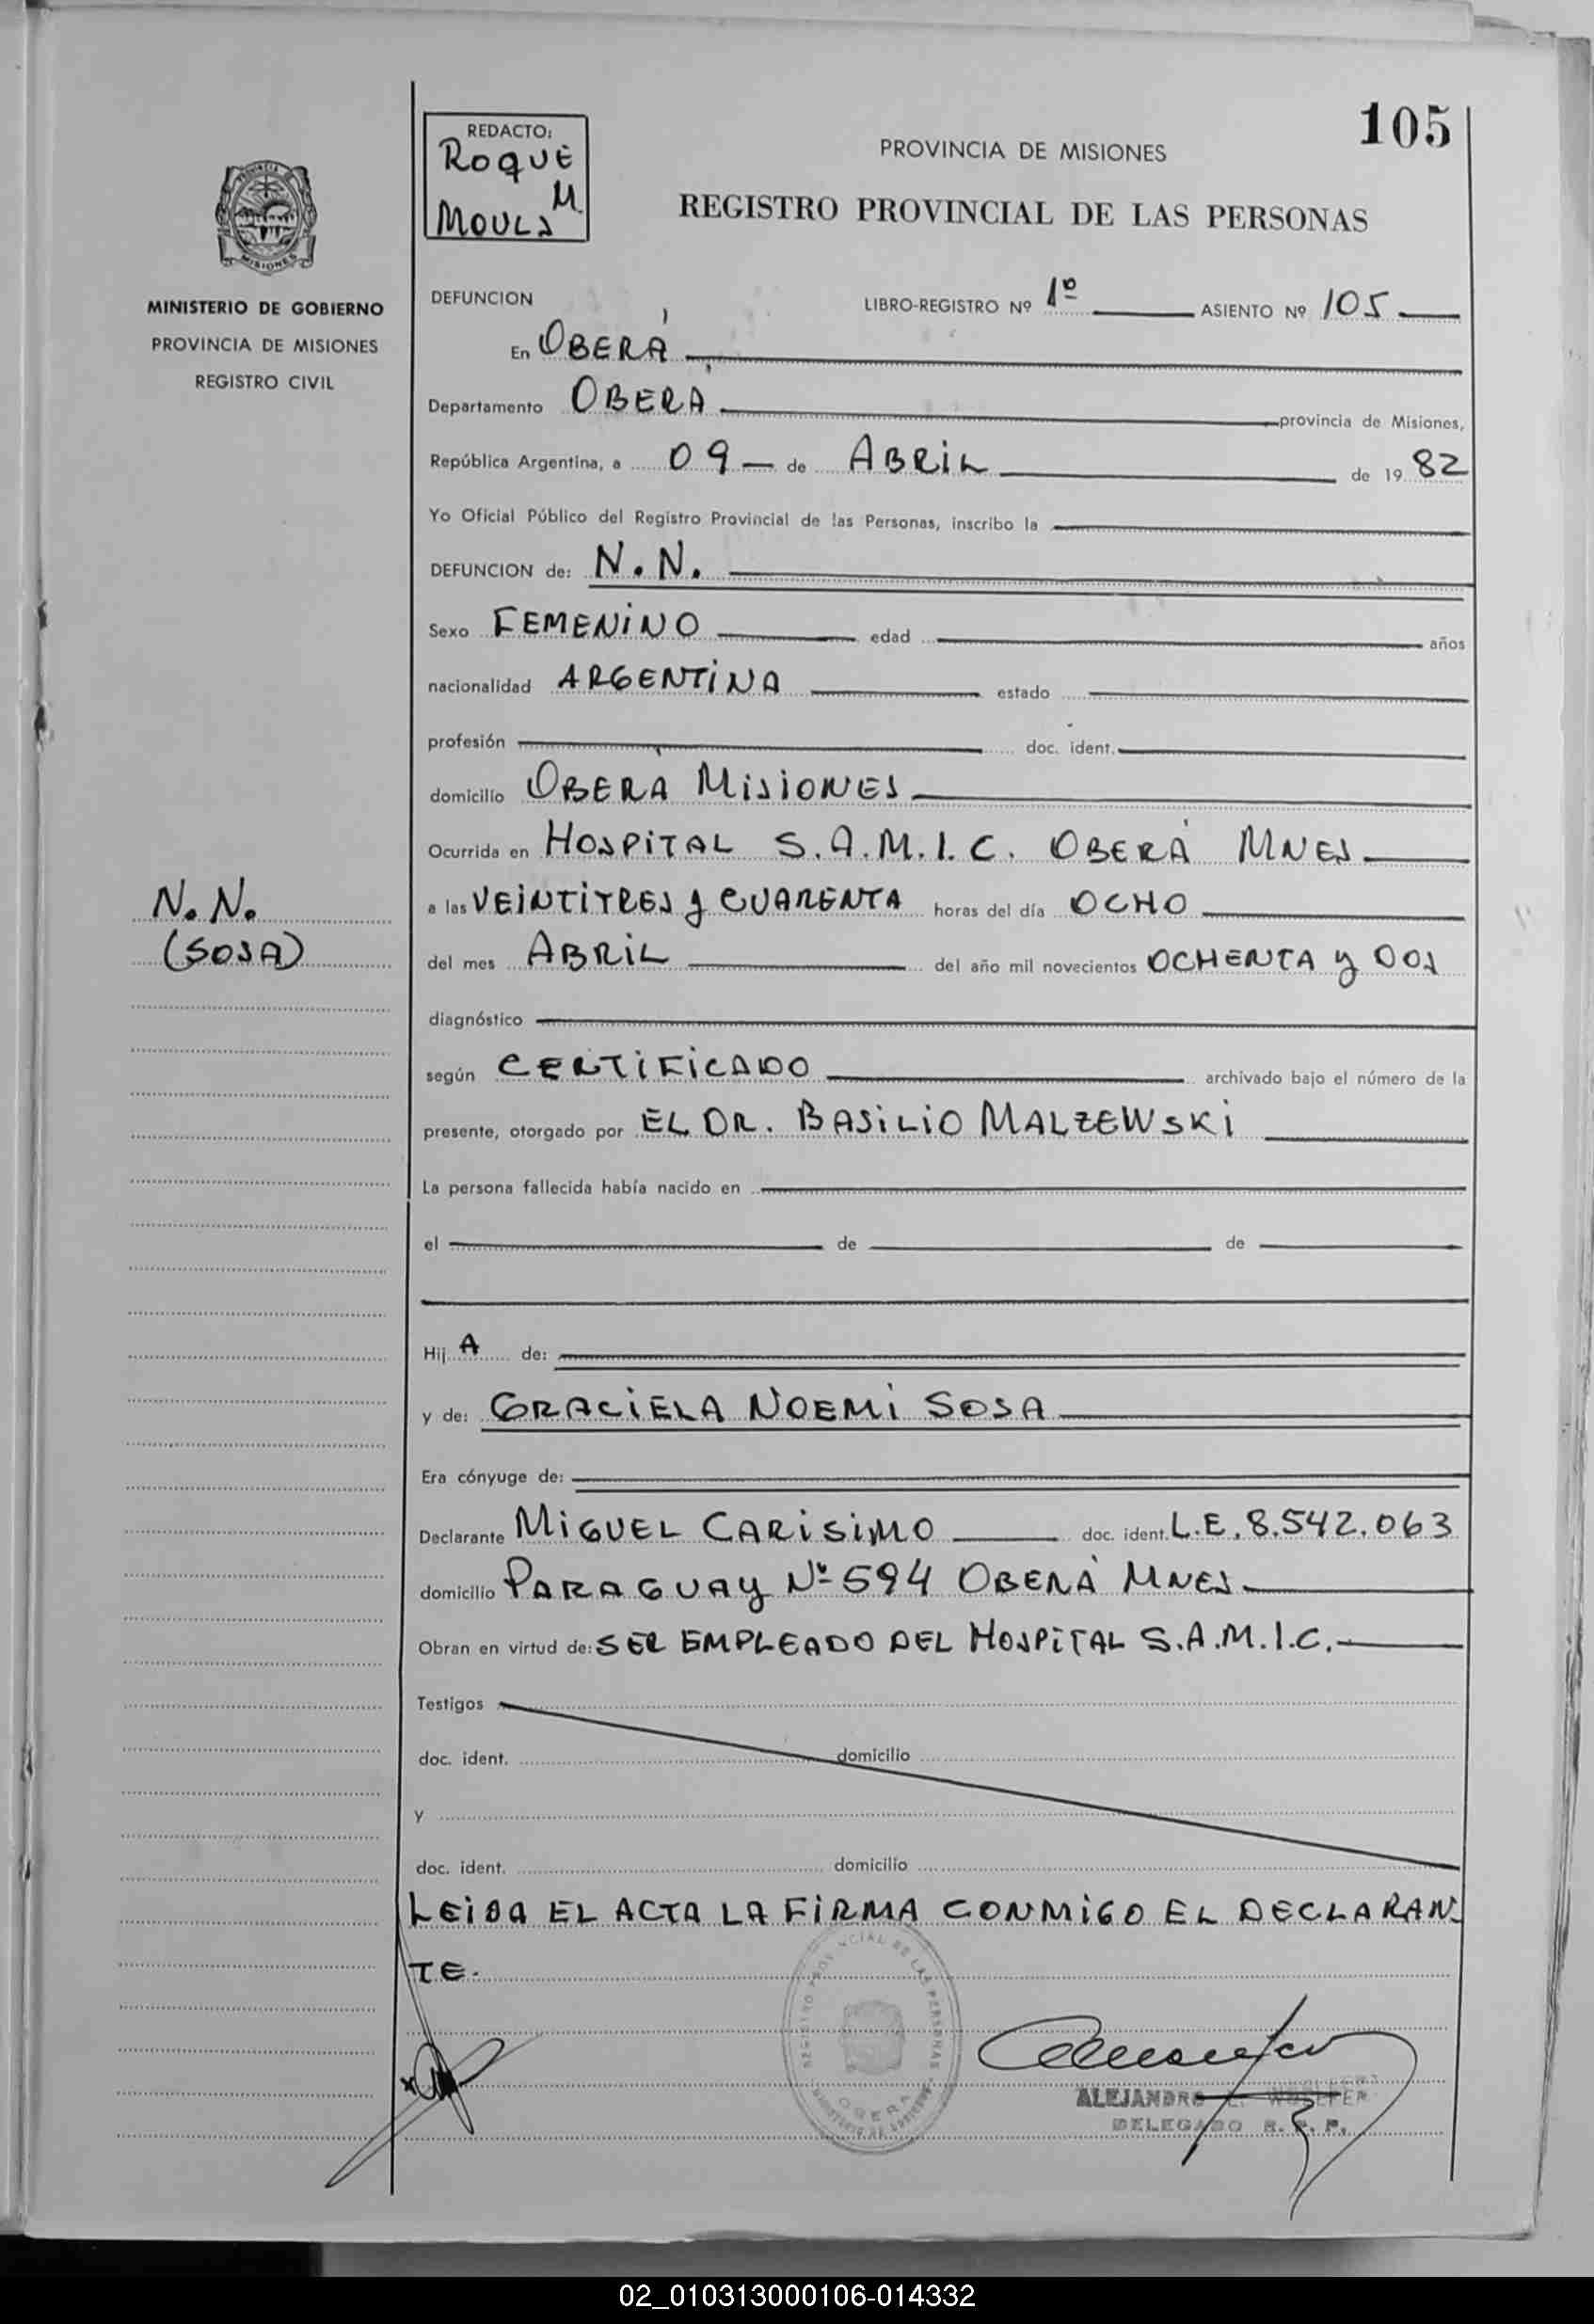 105
REDACTO:
ROQUE
M.
MOULS
PROVINCIA DE MISIONES
REGISTRO PROVINCIAL DE LAS PERSONAS
MISIONES
MINISTERIO DE GOBIERNO
PROVINCIA DE MISIONES
REGISTRO CIVIL
DEFUNCION LIBRO-REGISTRO Nº 1º ASIENTO Nº 105
En OBERÁ
Departamento OBERÁ provincia de Misiones,
República Argentina, a 09 - de ABRIL de 19 82
Yo Oficial Público del Registro Provincial de las Personas, inscribo la
DEFUNCION de: N.N.
Sexo FEMENINO edad años
nacionalidad ARGENTINA estado
profesión doc. ident.
domicilio OBERÁ MISIONES
Ocurrida en HOSPITAL S.A.M.I.C. OBERÁ MNES
a las VEINTITRES y CUARENTA horas del día OCHO
N.N.
(SOSA)
del mes ABRIL del año mil novecientos OCHENTA y DOS
diagnóstico
según CERTIFICADO archivado bajo el número de la
presente, otorgado por EL DR. BASILIO MALZEWSKI
La persona fallecida había nacido en
el de de
Hij A de:
y de: GRACIELA NOEMI SOSA
Era cónyuge de:
Declarante MIGUEL CARISIMO doc. ident. L.E. 8.542.063
domicilio PARAGUAY Nº 594 OBERÁ MNES
Obran en virtud de: SER EMPLEADO DEL HOSPITAL S.A.M.I.C.
Testigos
doc. ident. domicilio
y
doc. ident. domicilio
LEIDA EL ACTA LA FIRMA CONMIGO EL DECLARAN
TE.
OBERA
ALEJANDRO
DELEGADO R. P. P.
02_010313000106-014332